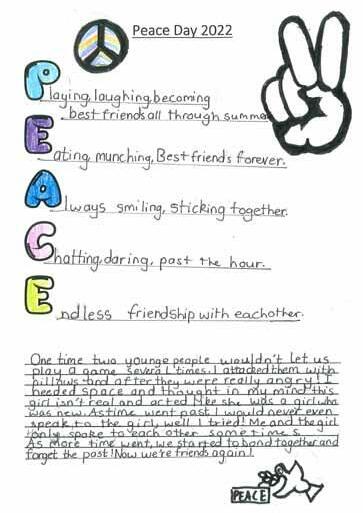 Peace Day 2022
Playing, laughing, becoming
best friends all through summer
Eating, munching, Best friends forever.
Always smiling, sticking together.
Chatting, daring, past the hour.
Endless friendship with eachother.
One time two younge people wouldn't let us
play a game several times. I attacked them with
pillows and after they were really angry! I
needed space and thought in my mind this
girl isn't real and acted like she was a girl who
was new. As time went past I would never even
speak to the girl, well I tried! Me and the girl
only spoke to each other sometimes.
As more time went, we started to bond together and
forget the past! Now we're friends again!
PEACE